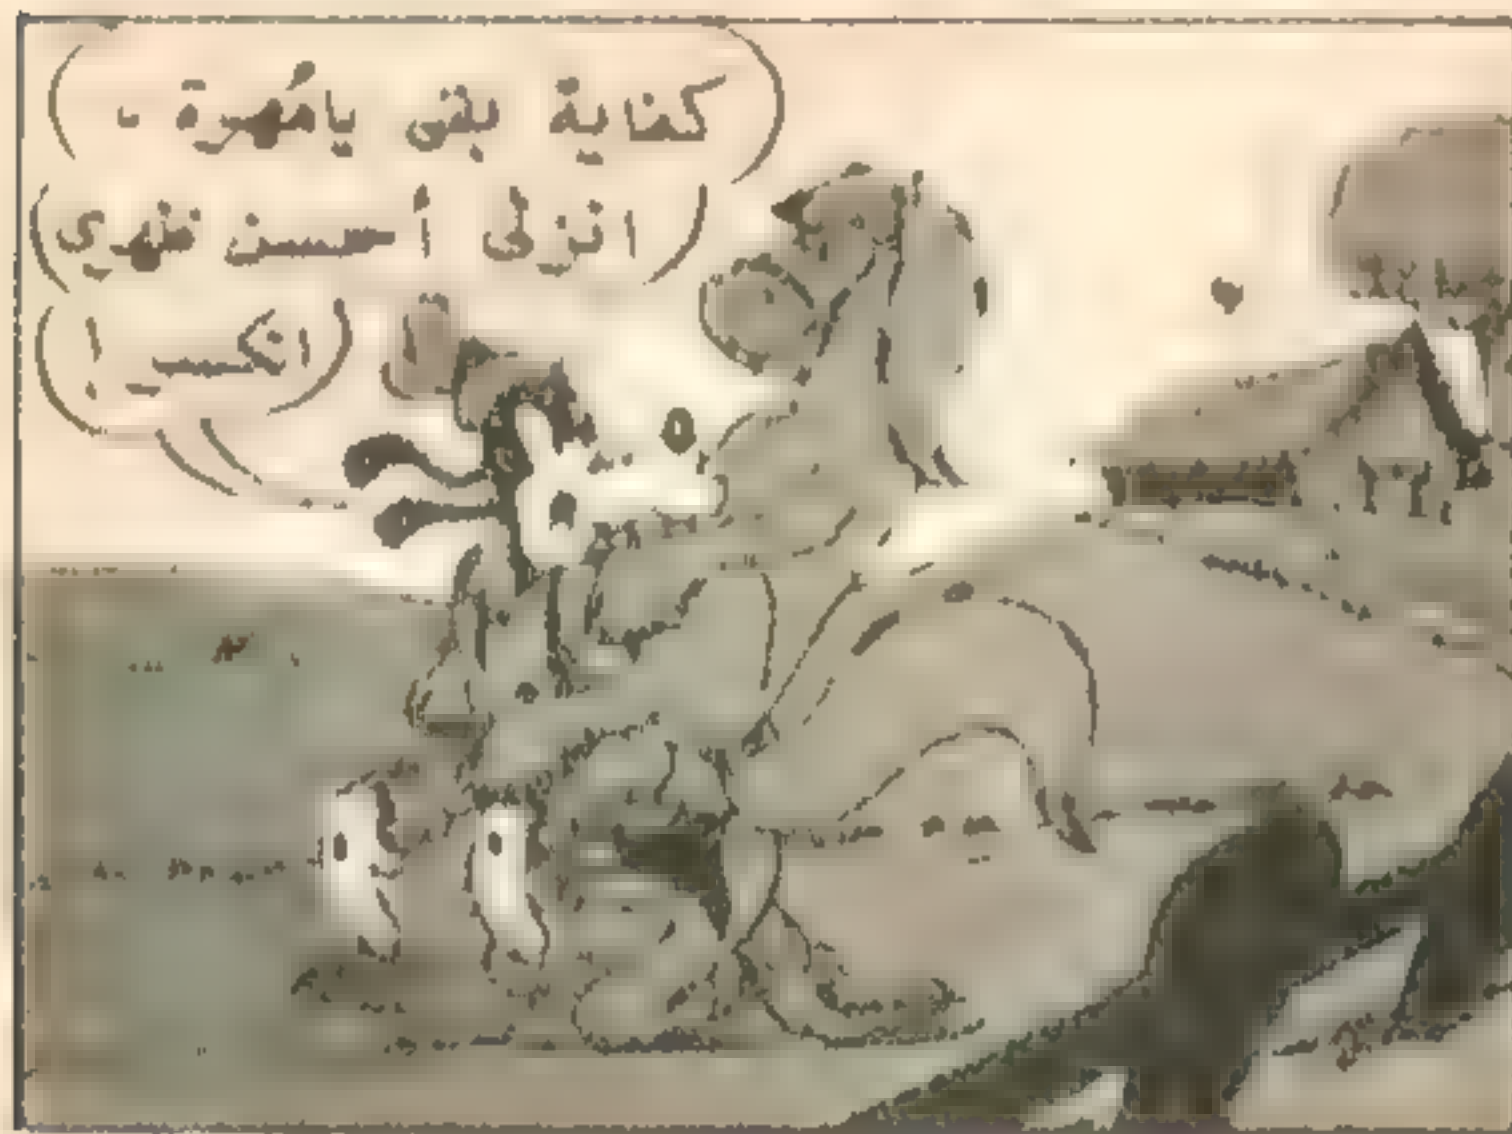 كفاية بقى يا مُهرة ..
انزلى أحسن ضهري
انكسر !